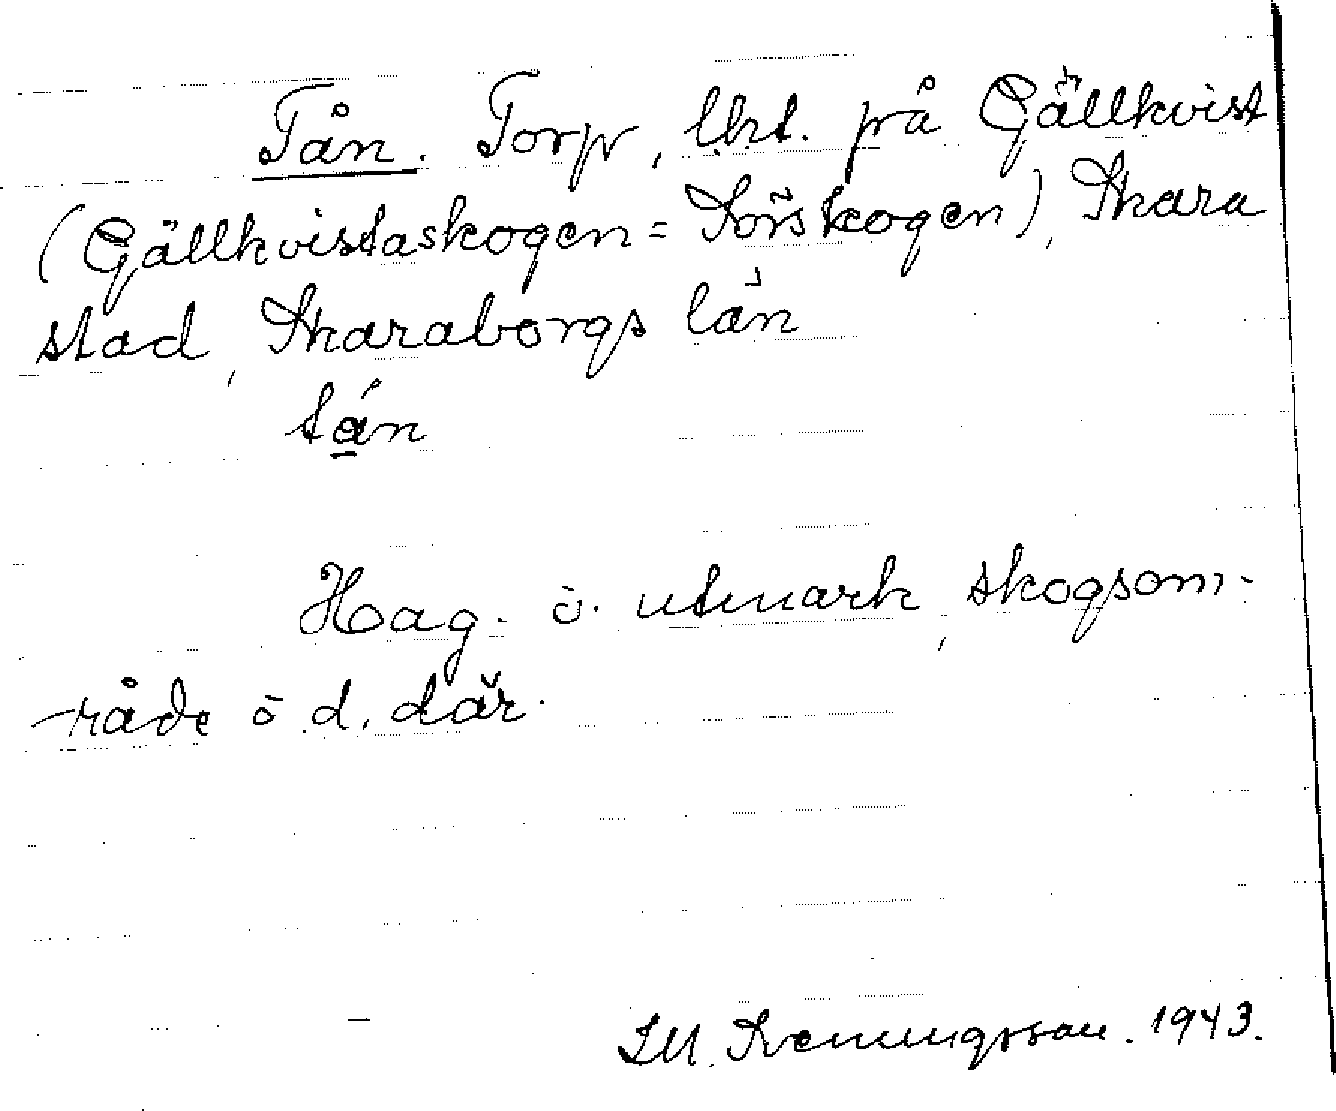 Tån. Torp, lht. på Gällkvist
(Gällkvistaskogen = Sörskogen), Skara
stad, Skaraborgs län
tån
Hag- ö. utmark, skogsom-
råde ö d. där.
1943.